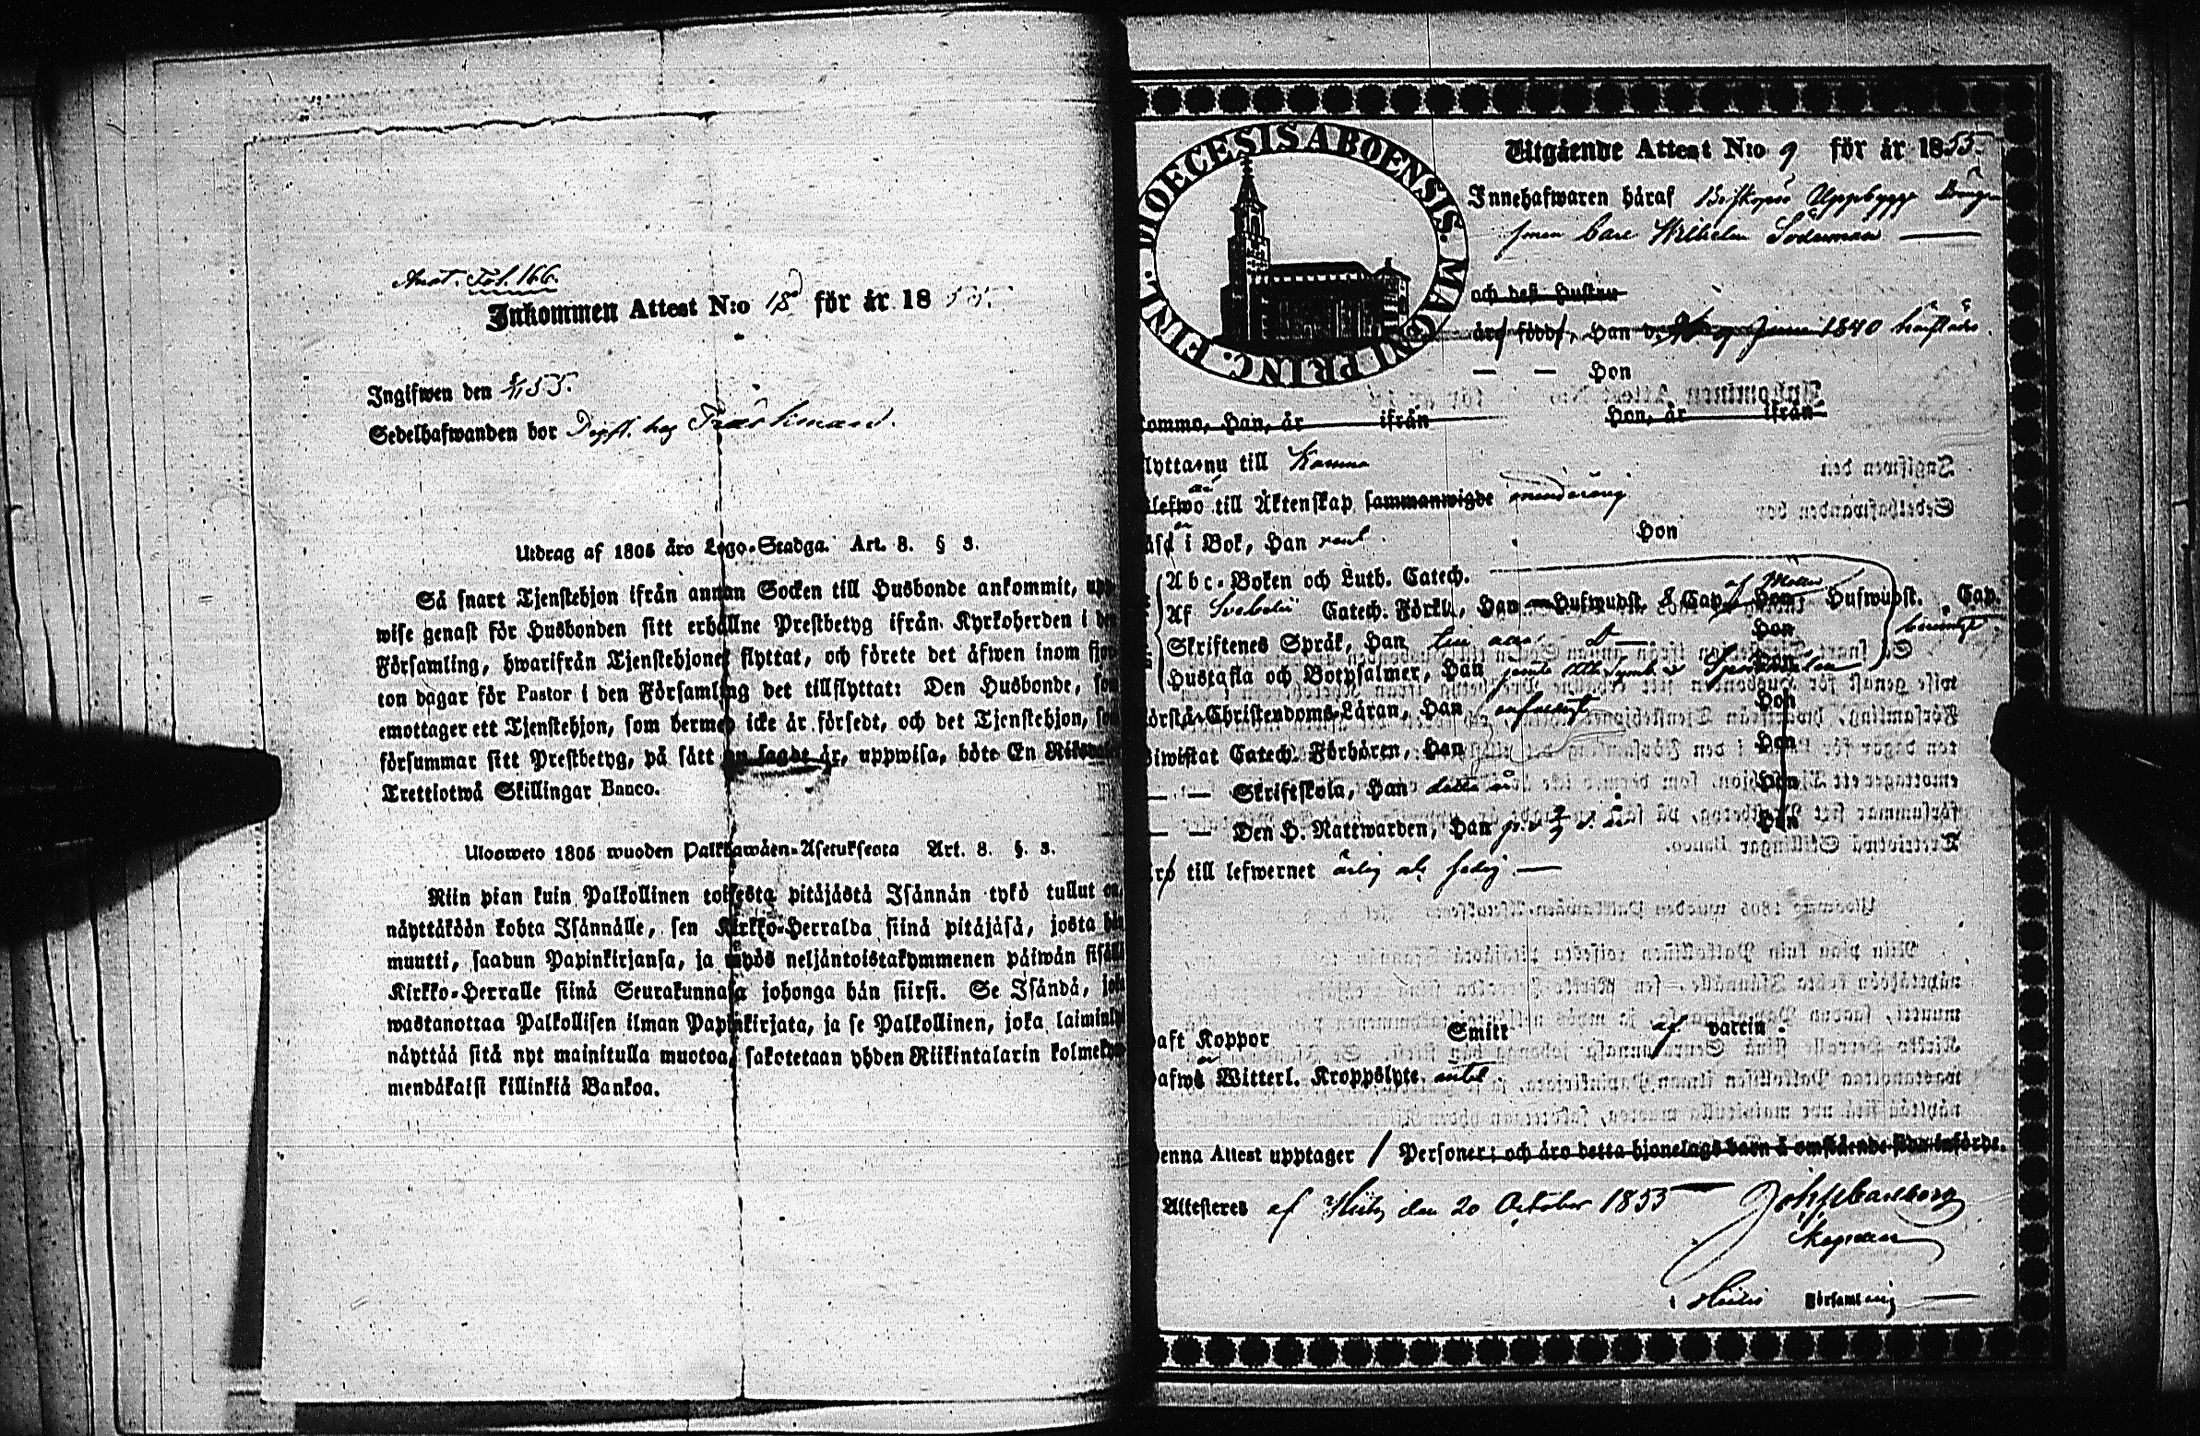 Anot. Fol. 166.
Inkommen Attest N:o 18 för år 1855.
Ingifwen den 55.
Sedelhafwanden bor hos
Utdrag af 1805 års Lego-Stadga. Art. 8. § 3.
Så snart Tjenstehjon ifrån annan Socken till Husbonde ankommit, upp-
wise genast för Husbonden sitt erhållne Prestbetyg ifrån Kyrkoherden i den
Församling, hwarifrån Tjenstehjonet flyttat, och förete det äfwen inom fjor-
ton dagar för Pastor i den Församling det tillflyttat: Den Husbonde, som
emottager ett Tjenstehjon, som dermed icke är försedt, och det Tjenstehjon, som
försummar sitt Prestbetyg, på sätt nu sagdt är, uppwisa, böte En Riksdaler
Trettiotwå Skillingar Banco.
Ulosweto 1805 wuoden Palkkawäen-Asetuksesta Art. 8. §. 3.
Niin pian kuin Palkollinen toisesta pitäjästä Isännän tykö tullut on,
näyttäköön kohta Isännälle, sen Kirkko-Herralda siinä pitäjäsä, josta hän
muutti, saadun Papinkirjansa, ja myös neljäntoistakymmenen päiwän sisällä
Kirkko-Herralle siinä Seurakunnasa johonga hän siirsi. Se Isändä, joka
wastanottaa Palkollisen ilman Papinkirjata, ja se Palkollinen, joka laiminlyö
näyttää sitä nyt mainitulla muotoa, sakotetaan yhden Riikintalarin kolmekym-
mendäkaksi killinkiä Bankoa.
DIOECESIS ABOENSIS. MAGNI PRINC. FINL.
Utgående Attest N:o 9 för år 1855.
Innehafwaren häraf Biskops Uppbygge Dräng
sonen Carl Wilhelm Söderman
och dess hustru
äro födde, Han d. 9 Juni 1840 härstädes.
— — Hon
komms, Han, år ifrån Hon, år ifrån
flytta nu till
blefwo till Äktenskap sammanwigde minderårig
läsa i Bok, Han rent Hon
Abc-Boken och Luth. Catech.
Af Svebelii Catech. Förkl., Han Huspudst. & Cap. Hon Huspudst. Cap.
Skriftenes Språk, Han Hon
Hustafla och Botpsalmer, Han Hon
förstå Christendoms-Läran, Han Hon
Biwistat Catech. Förhören, Han Hon
— — Skriftskola, Han detta år Hon
— — Den H. Nattwarden, Han Hon
äro till lefwernet ärlig och sedig
haft Koppor Smitt af vaccin.
hafwa Witterl. Kroppslyte intet
Denna Attest upptager 1 Personer; och äro detta hjonelags barn å omstående sida införde.
Attesteres af Hitis den 20 October 1855
Joh Carlborg
i Hitis Församling